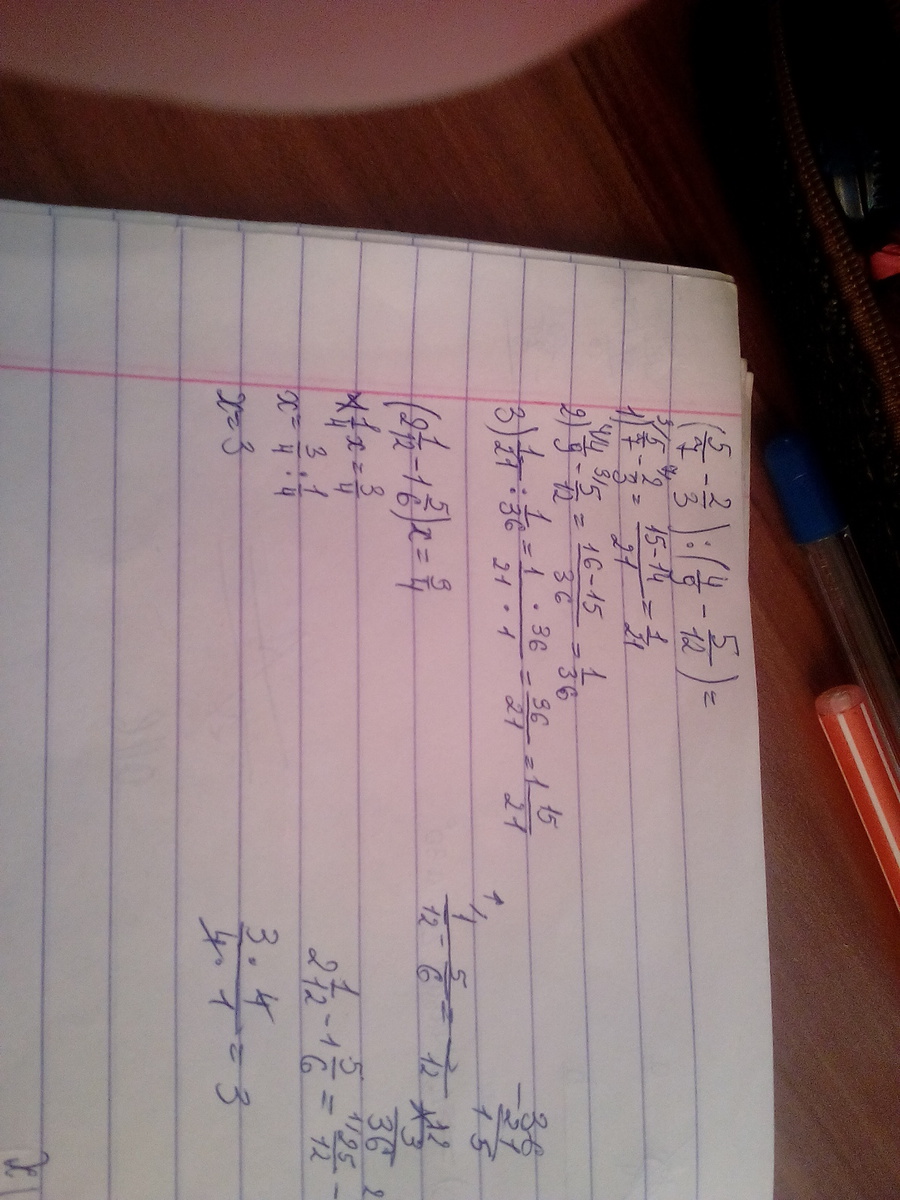 (5/7 - 2/3) : (4/9 - 5/12) =
1) 5/7 - 2/3 = 15-14/21 = 1/21
2) 4/9 - 5/12 = 16-15/36 = 1/36
3) 1/21 : 1/36 = 1 · 36/21 · 1 = 36/21 = 1 15/21
(2 1/12 - 1 5/6) x = 3/4
1/4 x = 3/4
x = 3/4 : 1/4
x = 3
36
- 21
15
1/12 - 5/6 = /12
12
3
36
2 1/12 - 1 5/6 = 25/12 -
3 · 4/4 · 1 = 3